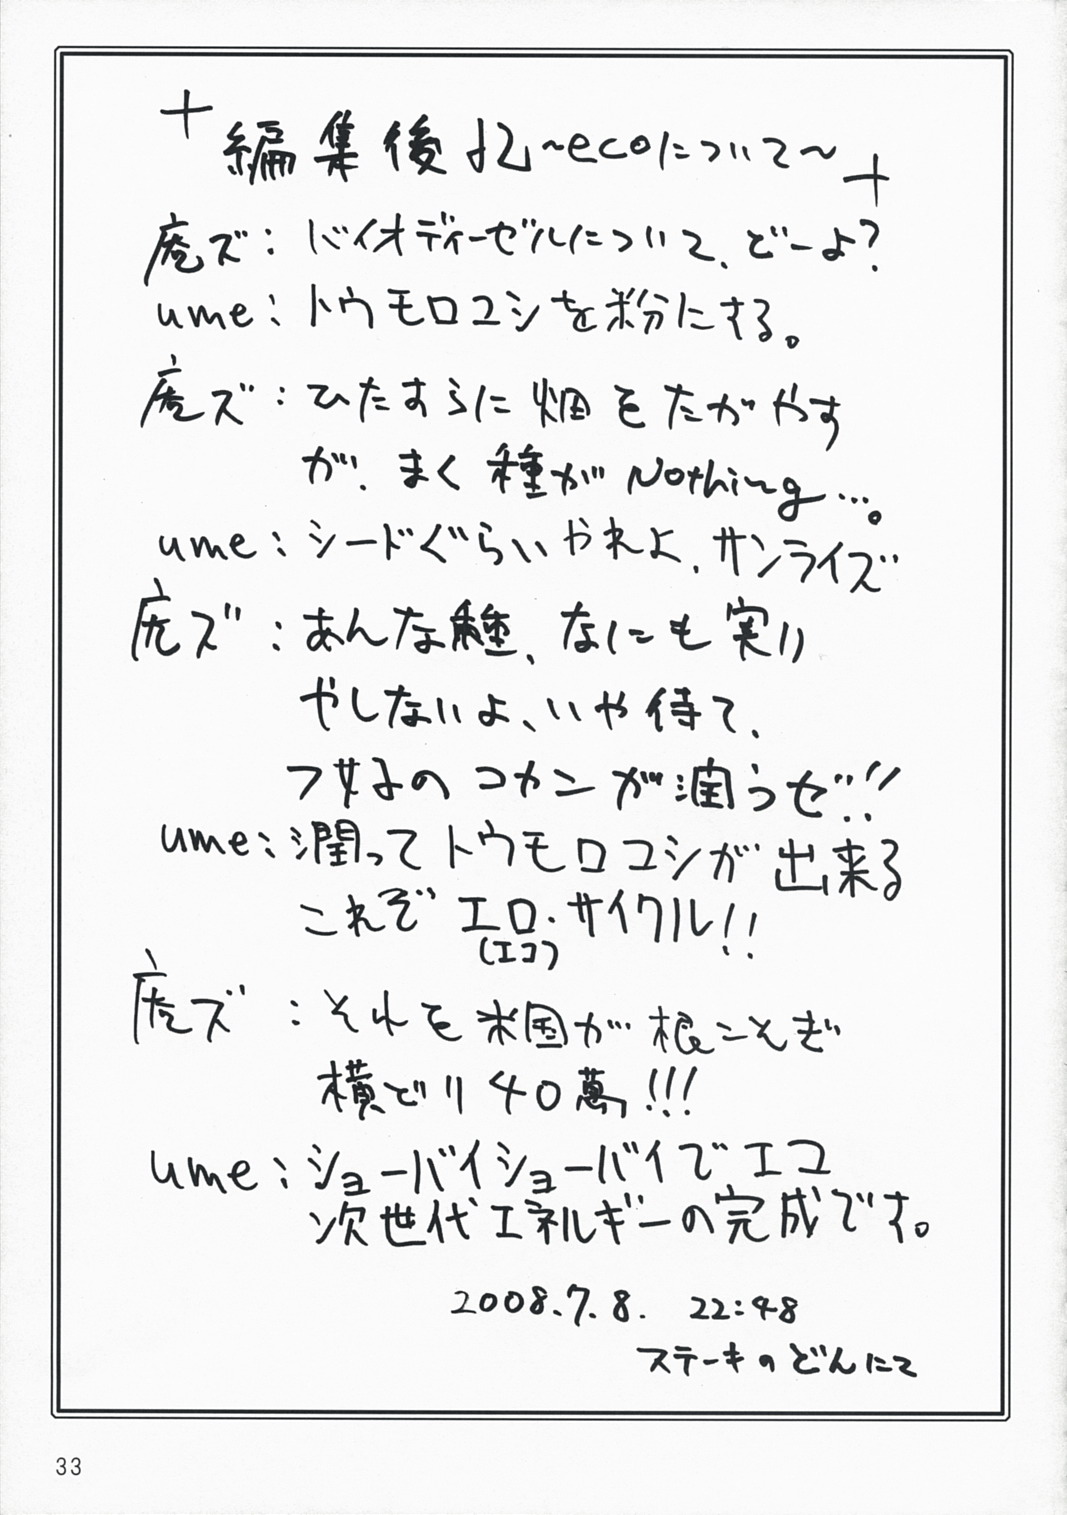 編集後記~ecoについて~
鹿ズ：バイオディーゼルについて、どーよ?
ume：トウモロコシを粉にする。
鹿ズ：ひたすらに畑をたがやす
が、まく種がNothing…。
ume：シードぐらいやれよ、サンライズ
鹿ズ：あんな種、なにも実り
やしないよ、いや待て、
フ女子のコカンが潤うゼ!!
ume：潤ってトウモロコシが出来る
これぞエロ・サイクル!!
(エコ)
鹿ズ：それを米国が根こそぎ
横どり40萬!!!
ume：ショーバイショーバイでエコ
次世代エネルギーの完成です。
2008.7.8. 22:48
ステーキのどんにて
33